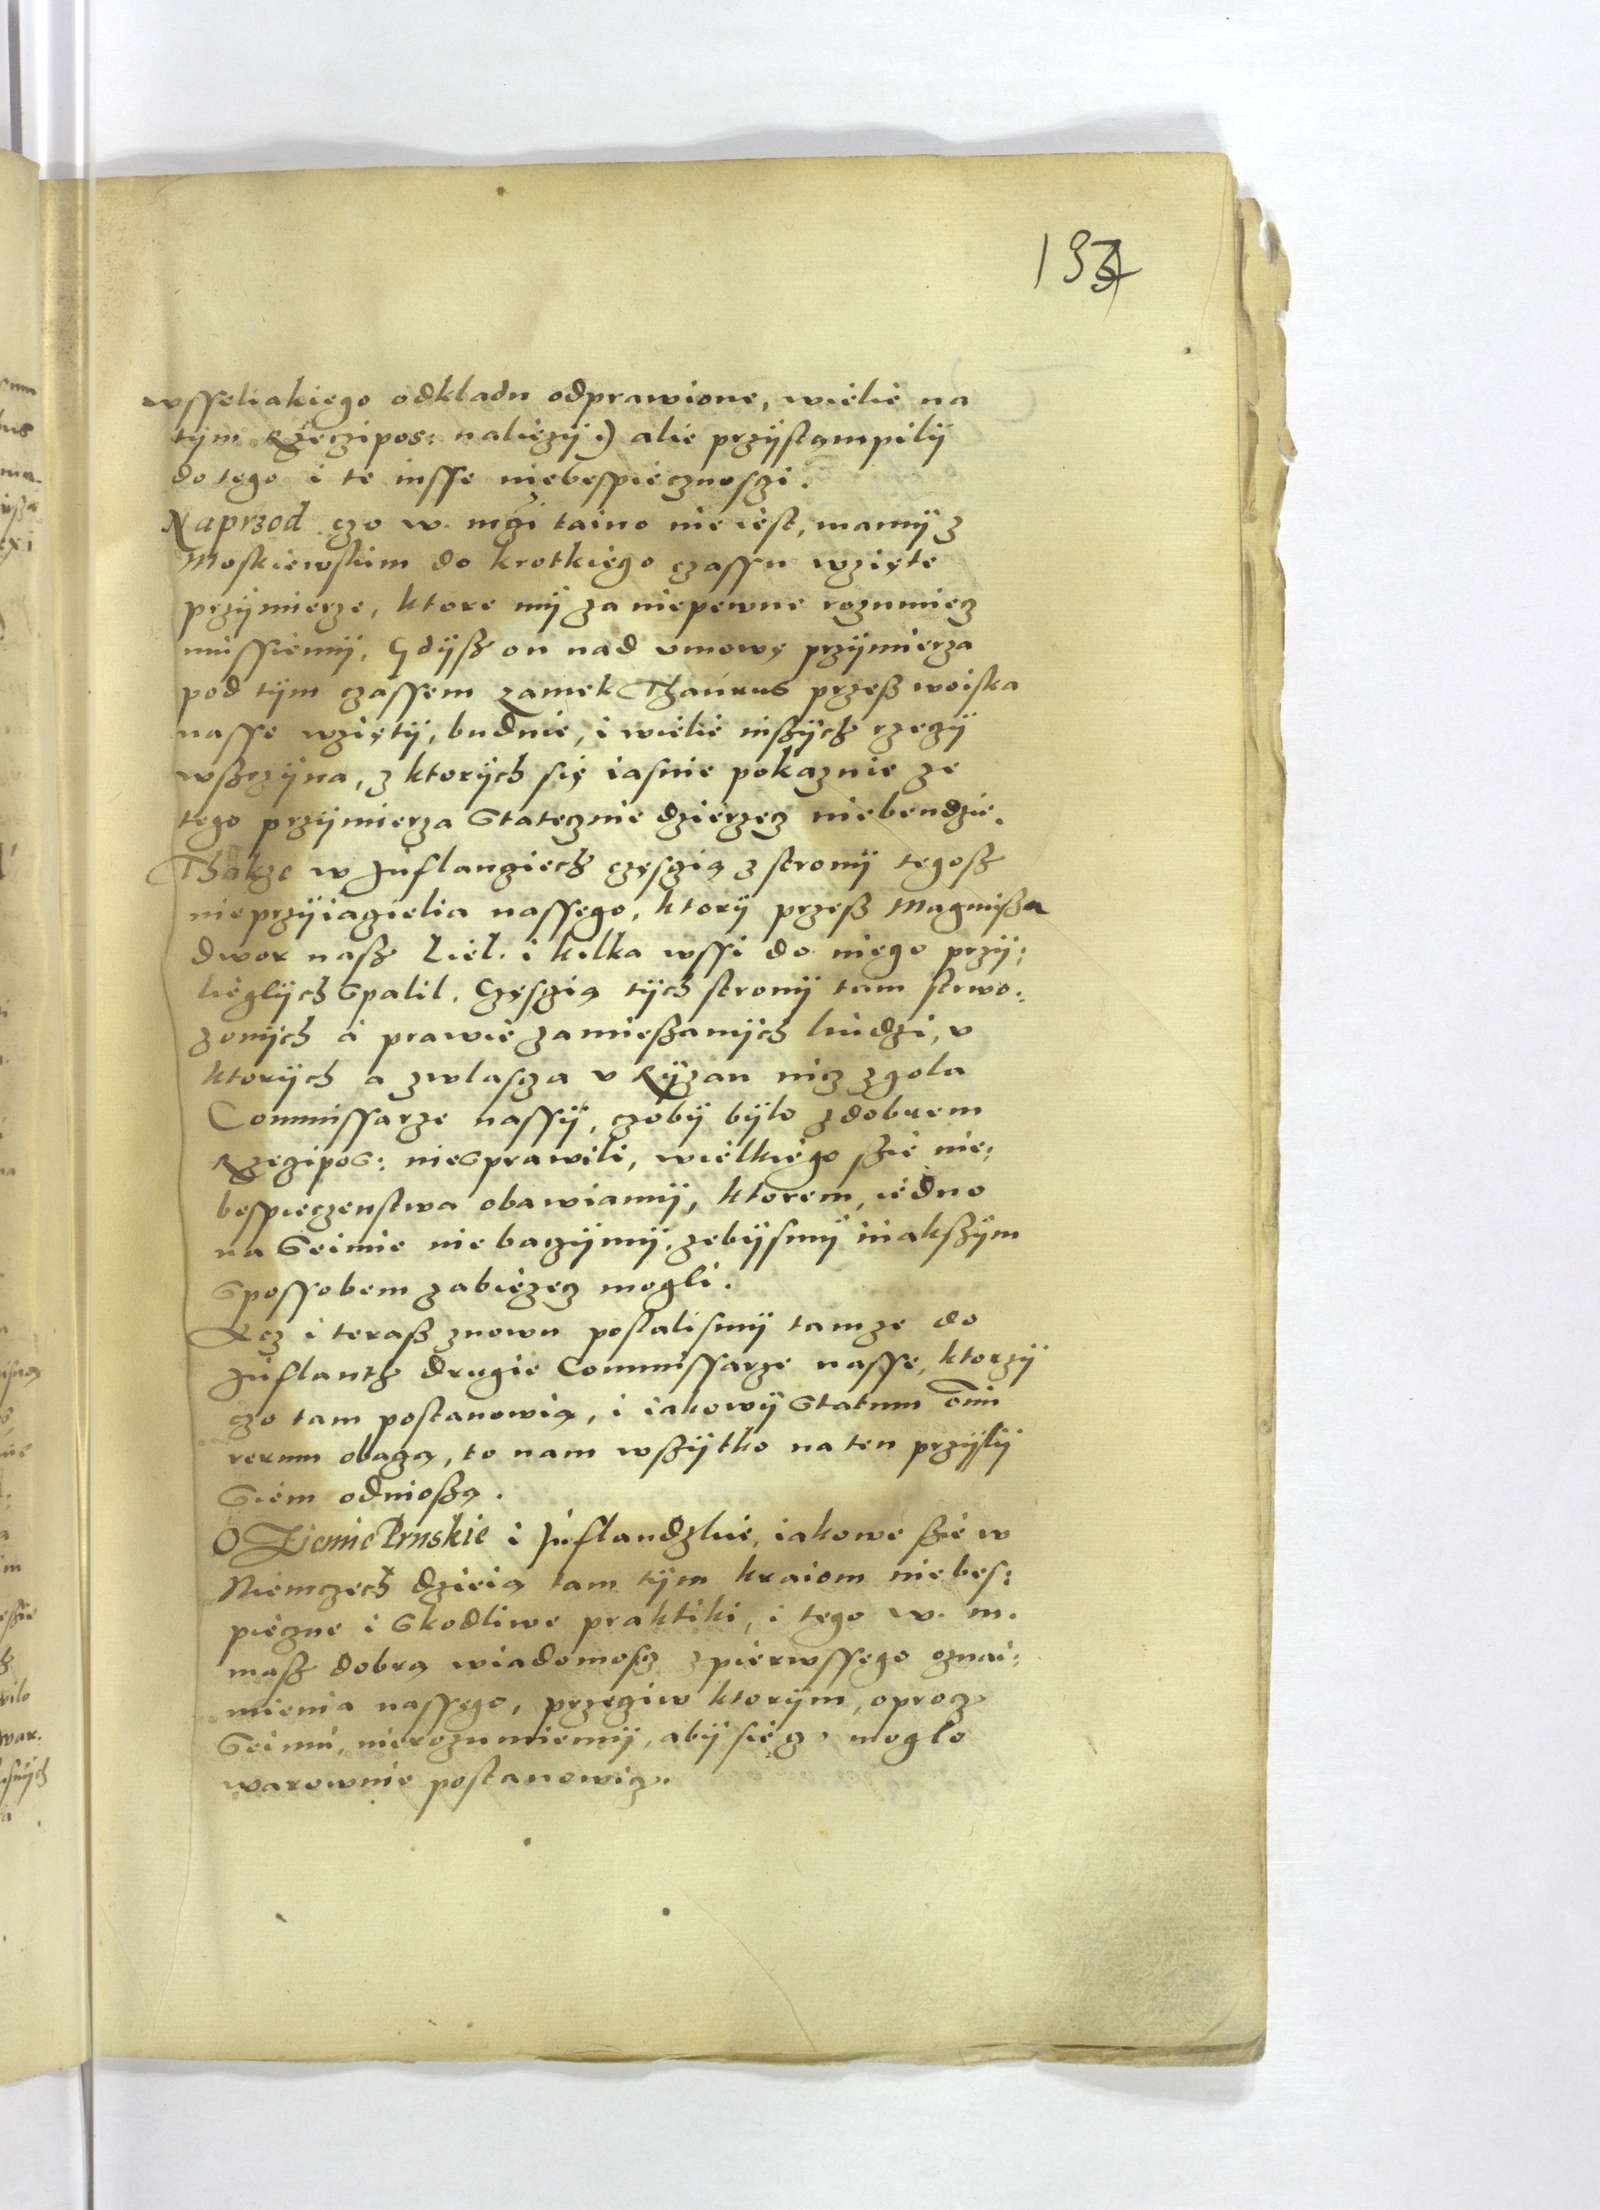 133
wsseliakiego odkladu odprawione, wielie na
tÿm Rzeczipos: naliezÿ:) alie przÿstąmpilÿ
do tego i te insse niebespiecznosczi.
Naprzod czo w. mczi taino nie iest, mamÿ z
Moskiewskim do krotkiego czassu wzięte
przÿmierze, ktore mÿ za niepewne rozumiecz
mussiemÿ, Gdÿsz on nad vmowę przÿmierza
pod tÿm czassem zamek Thaurus przesz woiska
nasse wziętÿ, buduie, i wielie inszÿch rzeczÿ
wszczÿna, z ktorÿch się iasnie pokazuie ze
tego przÿmierza Statecznie dzierzecz niebendzie.
Thakze w Inflanciech częscią z stronÿ tegosz
nieprzÿiacielia nassego, ktorÿ przesz Magnusza
dwor nasz Liel. i kilka wssi do niego przÿ:
lieglÿch Spalil, Częscią tÿch stronÿ tam strwo:
zonÿch a prawie zamieszanÿch ludzi, v
ktorÿch a zwlascza v Rÿzan nicz zgola
Commissarze nassÿ, czobÿ bÿlo z dobrem
Rzeczipos: nieSprawili, wielkiego szie nie:
bespieczenstwa obawiamÿ, ktorem, iedno
na Seimie nie baczÿmÿ, zebÿsmÿ inakszÿm
Spossobem zabiezecz mogli.
Acz i terasz znowu poslalismÿ tamze do
Inflanth drugie Commissarze nasse, ktorzÿ
czo tam postanowią, i iakowÿ Statum om̃i
rerum obaczą, to nam wszÿtko na ten przÿslÿ
Siem odnioszą.
O Ziemie Pruskie i Inflandzkie, iakowe szie w
Niemczech dzieią tam tÿm kraiom niebes:
pieczne i Skodliwe praktiki, i tego w. m.
masz dobrą wiadomoscz z pierwssego oznai:
mienia nassego, przeciw ktorÿm, oprocz
Seimu, nierozumiemÿ, abÿ się czo moglo
warownie postanowicz.